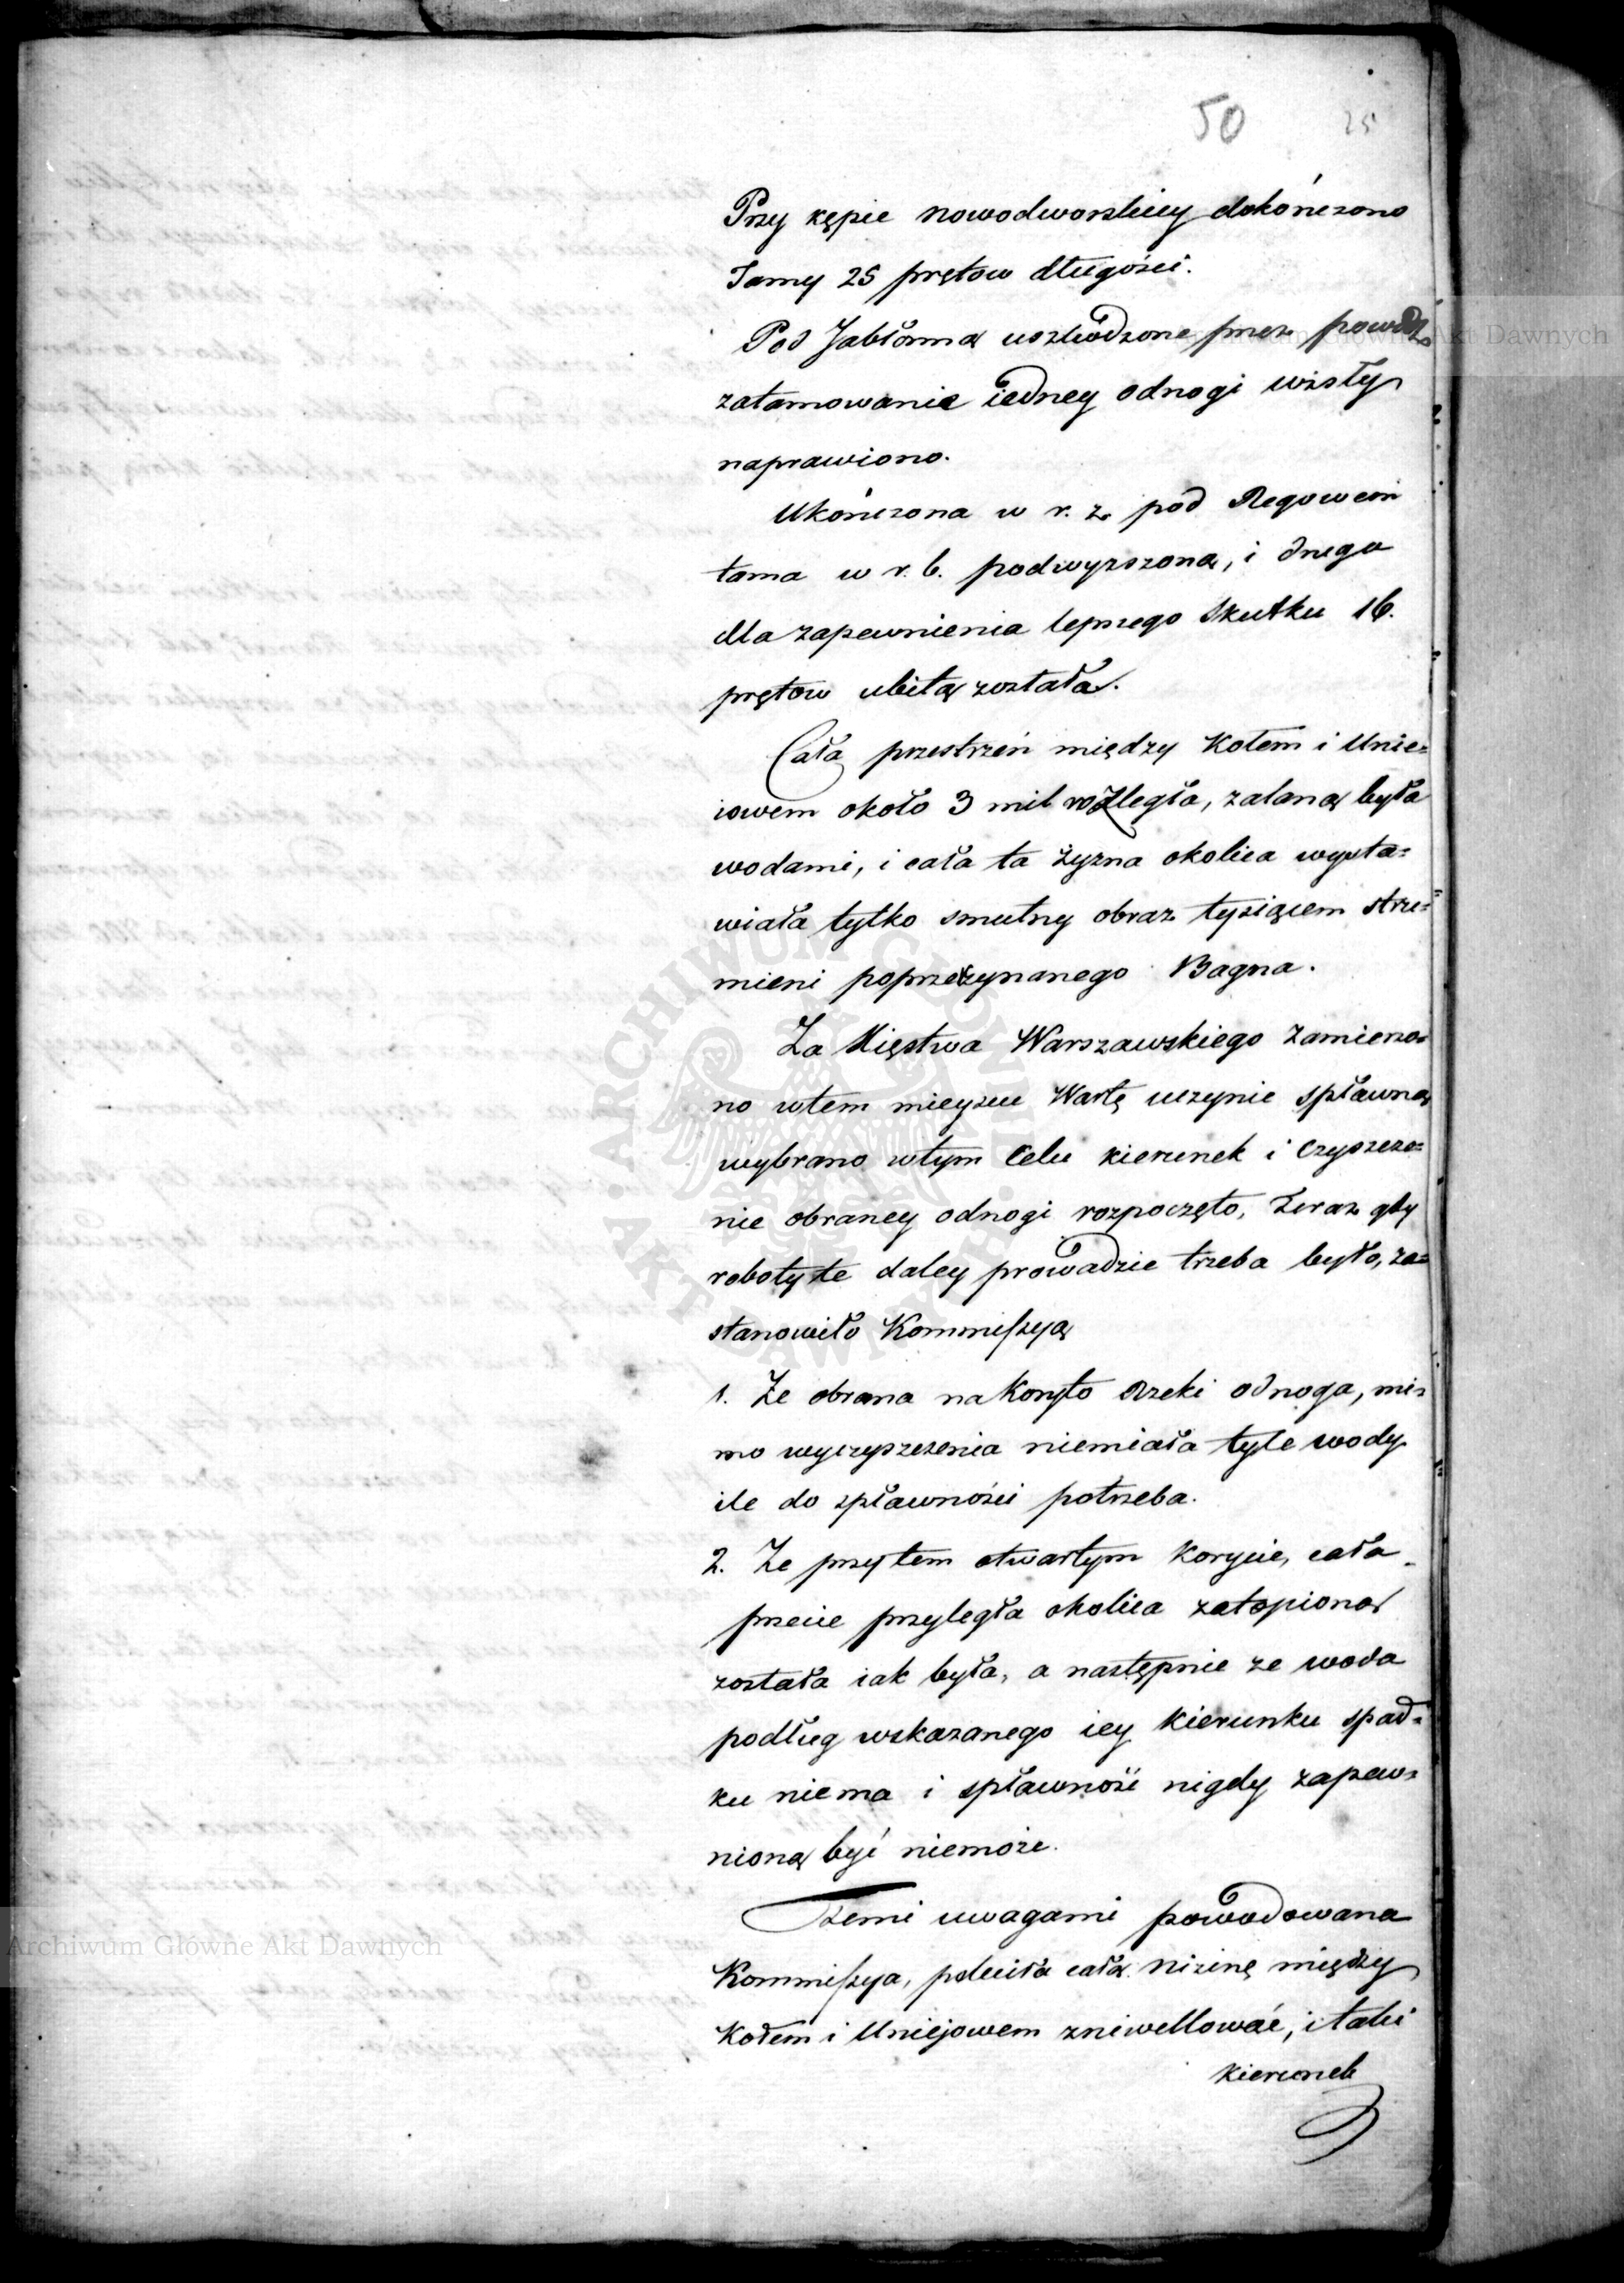 50 25
Przy kępie nowodworskiey dokończono
Tamy 25 prętow długości.
Pod Jabłonną uszkodzone przez powódź
zatamowanie iedney odnogi wisły
naprawiono.
Ukończona w r. z. pod Regowem
tama w r. b. podwyższona, i druga
dla zapewnienia lepszego skutku 16.
prętow ubitą została.
Cała przestrzeń między Kołem i Unie=
iowem około 3 mil rozległa, zalaną była
wodami, i cała ta żyzna okolica wysta=
wiała tylko smutny obraz tysiącem stru=
mieni poprzeżynanego Bagna.
Za Xięstwa Warszawskiego zamierzo=
no wtem mieyscu Wartę uczynić spławną
wybrano wtym Celu kierunek i czyszcze=
nie obraney odnogi rozpoczęto, Teraz gdy
roboty te daley prowadzić trzeba było, za=
stanowiło Kommissyą
1. Że obrana na Koryto Rzeki odnoga, mi=
mo wyczyszczenia niemiała tyle wody
ile do spławności potrzeba.
2. Że przy tem otwartym Korycie, cała
przecie przyległa okolica zatopioną
została iak była, a następnie że woda
podług wskazanego iey kierunku spad=
ku niema i spławność nigdy zapew=
nioną być niemoże.
Temi uwagami powodowana
Kommissya, poleciła całą nizinę między
Kołem i Uniejowem zniwellować, i taki
kierunek
Archiwum Główne Akt Dawnych
Archiwum Główne Akt Dawnych
ARCHIWUM GŁÓWNE AKT DAWNYCH